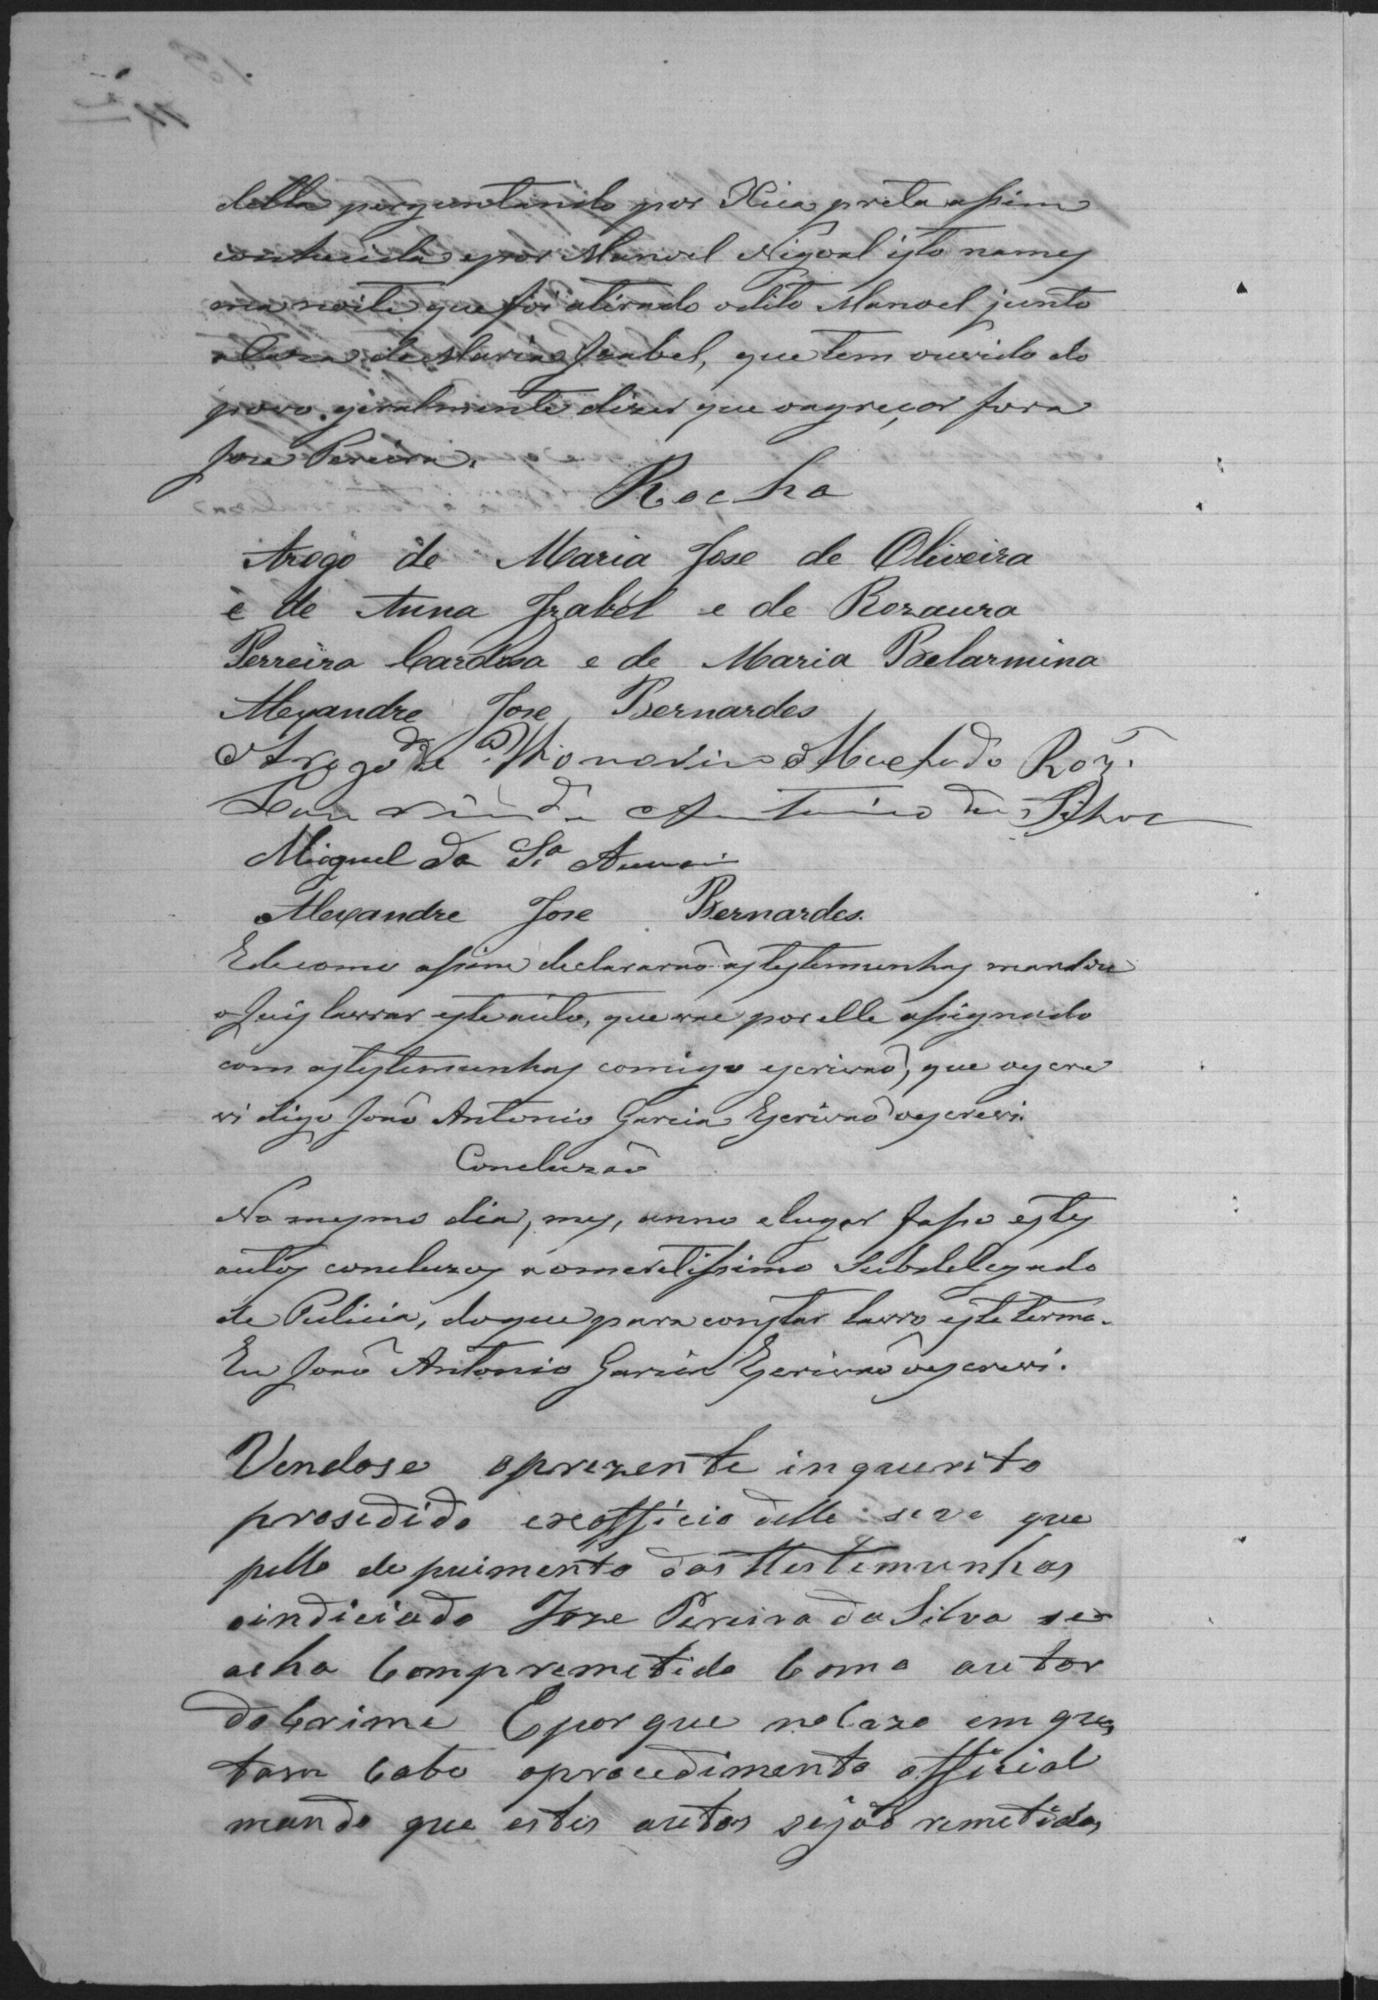 della perguntando por Xica preta assim
conhecida e por Manoel isto na mes
ma noite que foi atirado o dito Manoel junto
a Caza de Maria Izabel, que tem ouvido do
povo geralmente dizer que o agreçor fora
Jose Pereira.
Rocha
Arogo de Maria Jose de Oliveira
e de Anna Izabel e de Rozaura
Perreira Cardosa e de Maria Belarmina
Alexandre Jose Bernardes
Arogo de Machado Roiz.
Antonio da Silva
Miguel da Sa
Alexandre Jose Bernardes.
E de como assim declararaõ as testemunhas mandou
o Juis lavrar este auto, que vae por elle assignado
com as testemunhas comigo escrivaõ, que o escre
vi digo Joaõ Antonio Garcia Escrivaõ o escrevi.
Concluzaõ
No mesmo dia, mes, anno e lugar fasso estes
autos concluzos ao meretissimo Subdelegado
de Policia, do que para constar lavro este termo.
Eu Joaõ Antonio Garcia Escrivaõ o escrevi.
Vendose aprezente inquerito
prosedido exofficio delle seve que
pello depuimento das testemunhas
oindiciado Joze Pereira da Silva se
acha Compremetido Como autor
do Crime Eporque no Cazo em ques
tam Cabe oprocedimento official
mando que estes autos sejaõ remetidos